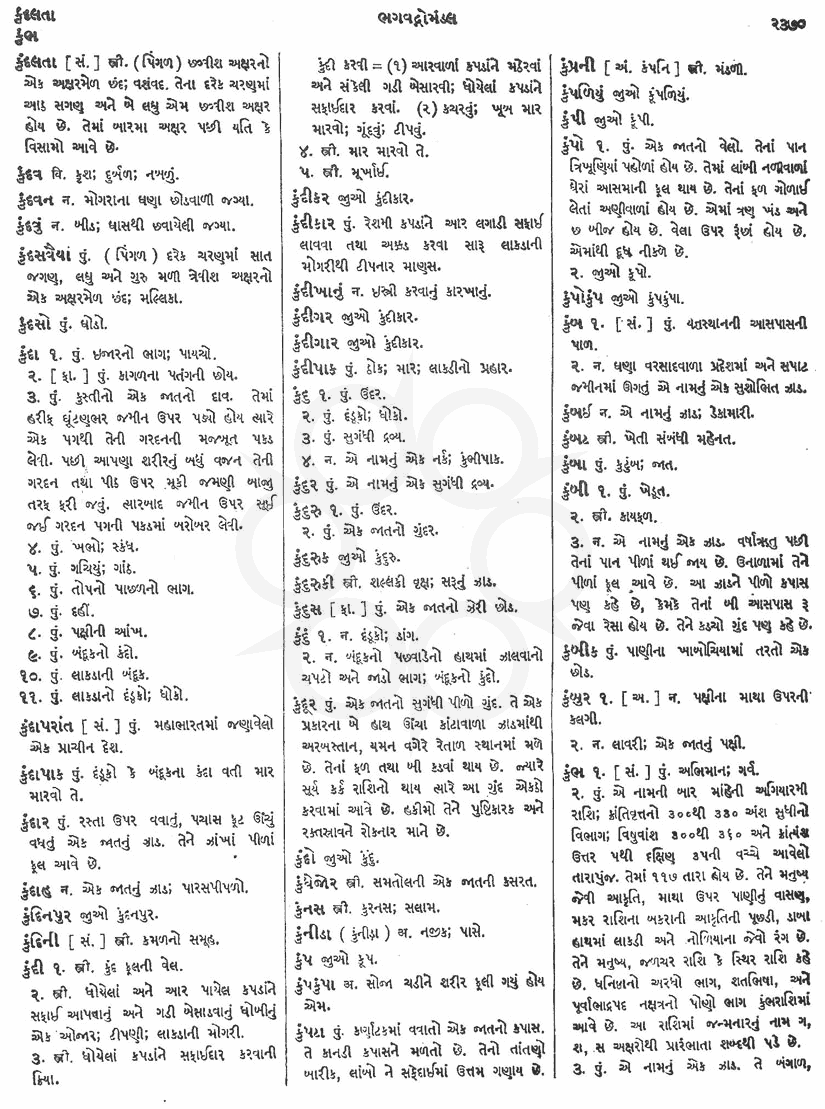 કુંદલતા
કુંભ
ભગવદ્ગોમંડલ
૨૩૭૦
કુંદલતા [ સં. ] સ્ત્રી. ( પિંગળ ) છવ્વીશ અક્ષરનો
એક અક્ષરમેળ છંદ; વશંવદ. તેના દરેક ચરણમાં
આઠ સગણ અને બે લઘુ એમ છવ્વીશ અક્ષર
હોય છે. તેમાં બારમા અક્ષર પછી યતિ કે
વિસામો આવે છે.
કુંદવ વિ. કૃશ; દુર્બળ; નબળું.
કુંદવન ન. મોગરાના ઘણા છોડવાળી જગ્યા.
કુંદવું ન. બીડ; ઘાસથી છવાયેલી જગ્યા.
કુંદસવૈયાં પું. ( પિંગળ ) દરેક ચરણમાં સાત
જગણ, લઘુ અને ગુરુ મળી ત્રેવીશ અક્ષરનો
એક અક્ષરમેળ છંદ; મલ્લિકા.
કુંદસો પું. ઘોડો.
કુંદા ૧. પું. ઇજારનો ભાગ; પાયચો.
૨. [ ફા. ] પું. કાગળના પતંગની છોય.
૩. પું. કુસ્તીનો એક જાતનો દાવ. તેમાં
હરીફ ઘૂંટણભર જમીન ઉપર પડ્યો હોય ત્યારે
એક પગથી તેની ગરદનની મજબૂત પકડ
લેવી. પછી આપણા શરીરનું બધું વજન તેની
ગરદન તથા પીઠ ઉપર મૂકી જમણી બાજુ
તરફ ફરી જવું. ત્યારબાદ જમીન ઉપર સૂઈ
જઈ ગરદન પગની પકડમાં બરોબર લેવી.
૪. પું. ખભો; સ્કંધ.
૫. પું. ગચિયું; ગાંઠ.
૬. પું. તોપનો પાછળનો ભાગ.
૭. પું. દહીં.
૮. પું. પક્ષીની આંખ.
૯. પું. બંદૂકનો કંદો.
૧૦. પું. લાકડાની બંદૂક.
૧૧. પું. લાકડાનો દંડૂકો; ધોકો.
કુંદાપરાંત [ સં. ] પું. મહાભારતમાં જણાવેલો
એક પ્રાચીન દેશ.
કુંદાપાક પું. દંડૂકો કે બંદૂકના કંદા વતી માર
મારવો તે.
કુંદાર પું. રસ્તા ઉપર વવાતું, પચાસ ફૂટ ઊંચું
વધતું એક જાતનું ઝાડ. તેને ઝાંખાં પીળાં
ફૂલ આવે છે.
કુંદાહુ ન. એક જાતનું ઝાડ; પારસપીપળો.
કુંદિનપુર જુઓ કુંદનપુર.
કુંદિની [ સં. ] સ્ત્રી. કમળનો સમૂહ.
કુંદી ૧. સ્ત્રી. કુંદ ફૂલની વેલ.
૨. સ્ત્રી. ધોયેલાં અને આર પાયેલ કપડાંને
સફાઈ આપવાનું અને ગડી બેસાડવાનું ધોબીનું
એક ઓજાર; ટીપણી; લાકડાની મોગરી.
૩. સ્ત્રી. ધોયેલાં કપડાંને સફાઈદાર કરવાની
ક્રિયા.
કુંદી કરવી = (૧) આરવાળાં કપડાંને મઠેરવાં
અને સંકેલી ગડી બેસારવી; ધોયેલાં કપડાંને
સફાઈદાર કરવાં. (૨) કચરવું; ખૂબ માર
મારવો; ગૂંદવું; ટીપવું.
૪. સ્ત્રી. માર મારવો તે.
૫. સ્ત્રી. મૂર્ખાઈ.
કુંદીકર જુઓ કુંદીકાર.
કુંદીકાર પું. રેશમી કપડાંને આર લગાડી સફાઈ
લાવવા તથા અક્કડ કરવા સારૂ લાકડાની
મોગરીથી ટીપનાર માણસ.
કુંદીખાનું ન. ઇસ્ત્રી કરવાનું કારખાનું.
કુંદીગર જુઓ કુંદીકાર.
કુંદીગાર જુઓ કુંદીકાર.
કુંદીપાક પું. ઠોક; માર; લાકડીનો પ્રહાર.
કુંદુ ૧. પું. ઉંદર.
૨. પું. દંડૂકો; ધોકો.
૩. પું. સુગંધી દ્રવ્ય.
૪. ન. એ નામનું એક નર્ક; કુંભીપાક.
કુંદુર પું. એ નામનું એક સુગંધી દ્રવ્ય.
કુંદુરુ ૧. પું. ઉંદર.
૨. પું. એક જાતનો ગુંદર.
કુંદુરુક જુઓ કુંદુરુ.
કુંદુરુકી સ્ત્રી. શલ્લકી વૃક્ષ; સરૂનું ઝાડ.
કુંદુસ [ ફા. ] પું. એક જાતનો ઝેરી છોડ.
કુંદું ૧. ન. દંડૂકો; ડાંગ.
૨. ન. બંદૂકનો પછવાડેનો હાથમાં ઝાલવાનો
ચપટો અને જાડો ભાગ; બંદૂકનો કુંદો.
કુંદૂર પું. એક જાતનો સુગંધી પીળો ગુંદ. તે એક
પ્રકારના બે હાથ ઊંચા કાંટાવાળા ઝાડમાંથી
અરબસ્તાન, યમન વગેરે રેતાળ સ્થાનમાં મળે
છે. તેનાં ફળ તથા બી કડવાં થાય છે. જ્યારે
સૂર્ય કર્ક રાશિનો થાય ત્યારે આ ગુંદ એકઠો
કરવામાં આવે છે. હકીમો તેને પુષ્ટિકારક અને
રક્તસ્રાવને રોકનાર માને છે.
કુંદો જુઓ કુંદું.
કુંધેજોર સ્ત્રી. સમતોલની એક જાતની કસરત.
કુંનસ સ્ત્રી. કુરનસ; સલામ.
કુંનીડા ( કુંનીડ઼ા ) અ. નજીક; પાસે.
કુંપ જુઓ કૂપ.
કુંપકુંપા અ. સોજા ચડીને શરીર ફૂલી ગયું હોય
એમ.
કુંપટા પું. કર્ણાટકમાં વવાતો એક જાતનો કપાસ.
તે કાનડી કપાસને મળતો છે. તેનો તાંતણો
બારીક, લાંબો ને સફેદાઈમાં ઉત્તમ ગણાય છે.
કુંપ્રની [ અં. કંપનિ ] સ્ત્રી. મંડળી.
કુંપળિયું જુઓ કૂંપળિયું.
કુંપી જુઓ કૂંપી.
કુંપો ૧. પું. એક જાતનો વેલો. તેનાં પાન
ત્રિખૂણિયાં પહોળાં હોય છે. તેમાં લાંબી નળીવાળાં
ઘેરાં આસમાની ફૂલ થાય છે. તેનાં ફળ ગોળાઈ
લેતાં અણીવાળાં હોય છે. એમાં ત્રણ ખંડ અને
છ બીજ હોય છે. વેલા ઉપર રૂંછાં હોય છે.
એમાંથી દૂધ નીકળે છે.
૨. જુઓ કૂપો.
કુંપોકુંપ જુઓ કુંપકુંપા.
કુંબ ૧. [ સં. ] પું. યજ્ઞસ્થાનની આસપાસની
પાળ.
૨. ન. ઘણા વરસાદવાળા પ્રદેશમાં અને સપાટ
જમીનમાં ઊગતું એ નામનું એક સુશોભિત ઝાડ.
કુંબઈ ન. એ નામનું ઝાડ; ડેકામારી.
કુંબટ સ્ત્રી. ખેતી સંબંધી મહેનત.
કુંબા પું. કુટુંબ; જાત.
કુંબી ૧. પું. ખેડૂત.
૨. સ્ત્રી. કાયફળ.
૩. ન. એ નામનું એક ઝાડ. વર્ષાઋતુ પછી
તેનાં પાન પીળાં થઈ જાય છે. ઉનાળામાં તેને
પીળાં ફૂલ આવે છે. આ ઝાડને પીળો કપાસ
પણ કહે છે, કેમકે તેનાં બી આસપાસ રૂ
જેવા રેસા હોય છે. તેને કડચો ગુંદ પણ કહે છે.
કુંબીક પું. પાણીના ખાબોચિયામાં તરતો એક
છોડ.
કુંબુર ૧. [ અ. ] ન. પક્ષીના માથા ઉપરની
કલગી.
૨. ન. લાવરી; એક જાતનું પક્ષી.
કુંભ ૧. [ સં. ] પું. અભિમાન; ગર્વ.
૨. પું. એ નામની બાર માંહેની અગિયારમી
રાશિ; ક્રાંતિવૃત્તનો ૩૦૦થી ૩૩૦ અંશ સુધીનો
વિભાગ; વિષુવાંશ ૩૦૦થી ૩૬૦ અને ક્રાંત્યંશ
ઉત્તર ૫થી દક્ષિણ ૩૫ની વચ્ચે આવેલો
તારાપુંજ. તેમાં ૧૧૭ તારા હોય છે. તેને મનુષ્ય
જેવી આકૃતિ, માથા ઉપર પાણીનું વાસણ,
મકર રાશિના બકરાની આકૃતિની પૂછડી, ડાબા
હાથમાં લાકડી અને નોળિયાના જેવો રંગ છે.
તેને મનુષ્ય, જળચર રાશિ કે સ્થિર રાશિ કહે
છે. ધનિષ્ઠાનો અરધો ભાગ, શતભિષા, અને
પૂર્વાભાદ્રપદ નક્ષત્રનો પોણો ભાગ કુંભરાશિમાં
આવે છે. આ રાશિમાં જન્મનારનું નામ ગ,
શ, સ અક્ષરોથી પ્રારંભાતા શબ્દથી પડે છે.
૩. પું. એ નામનું એક ઝાડ. તે બંગાળ,